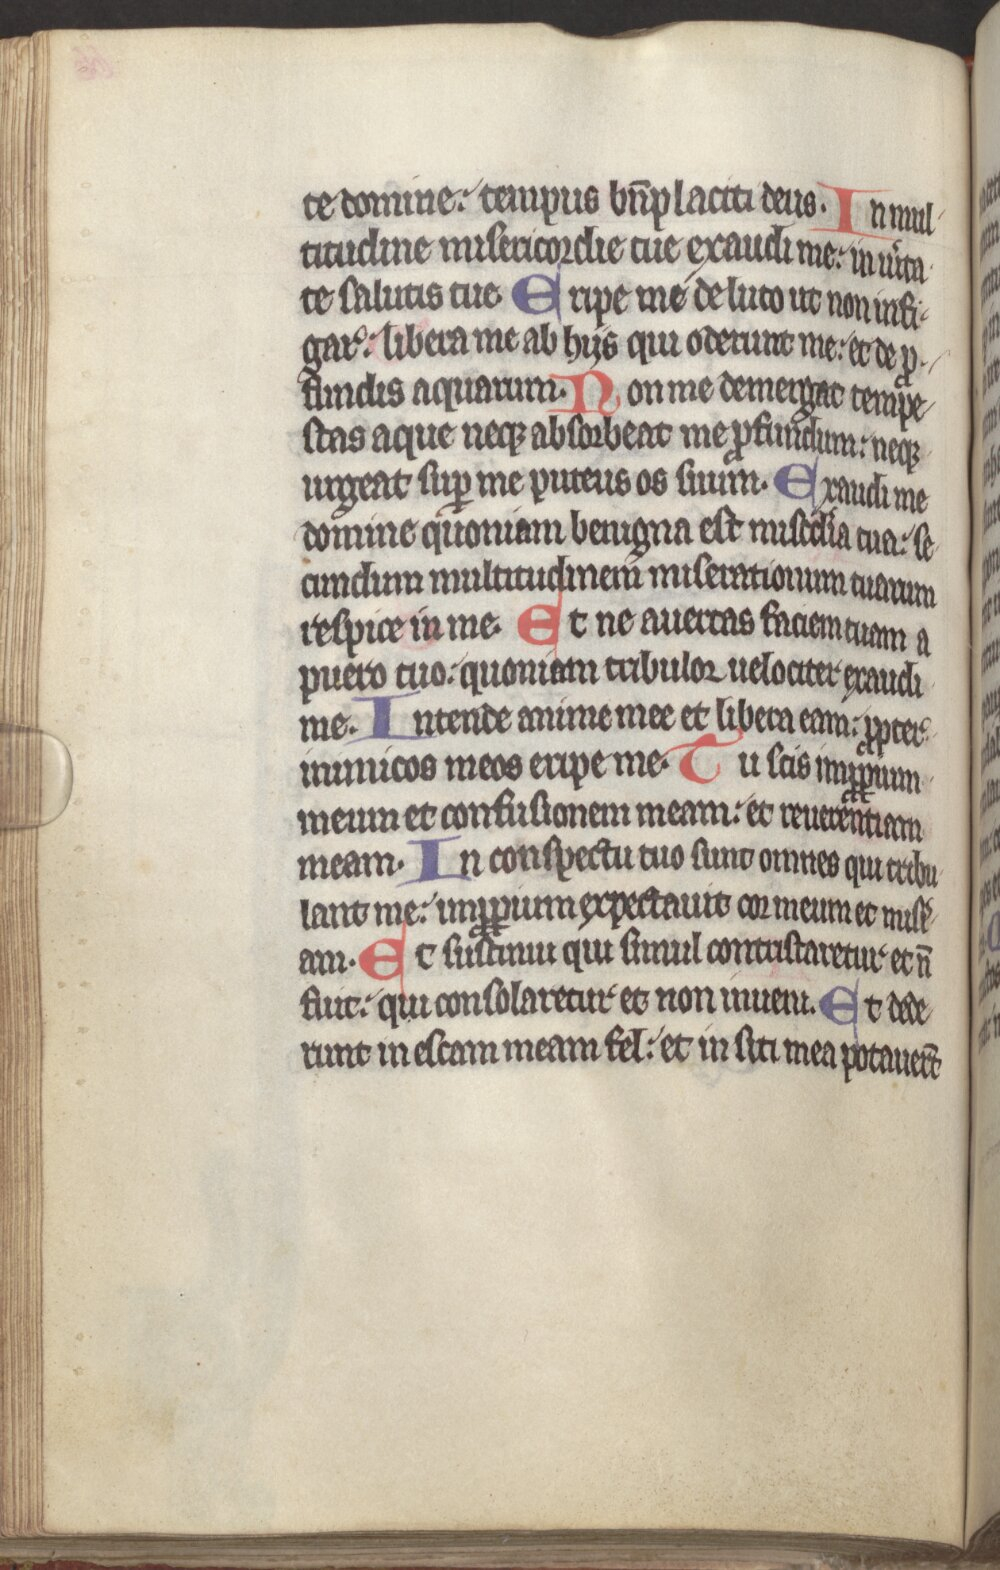 te domine: tempus bn̄placiti deus. In mul
titudine misericordie tue exaudi me: in ūita
te salutis tue. Eripe me de luto ut non infi
gar: libera me ab hijs qui oderunt me: et de ꝓ
fundis aquarum. Non me demergat tempe
stas aque neqꝫ absorbeat me ꝓfundum: neqꝫ
urgeat suꝑ me puteus os suum. Exaudi me
domine quoniam benigna est mīscdia tua: se
cundum multitudinem miserationum tuarum
respice in me. Et ne auertas faciem tuam a
puero tuo: quoniam tribulor uelociter exaudi
me. Intende anime mee et libera eam: ꝓpter
inimicos meos eripe me. Tu scis imꝓꝑium
meum et confusionem meam: et reuerentiam
meam. In conspectu tuo sunt omnes qui tribu
lant me: imꝓꝑium expectauit cor meum et misei
am. Et sustinui qui simul contristaretur et n̄
fuit: qui consolaretur et non inueni. Et dede
runt in escam meam fel: et in siti mea potauer̄t